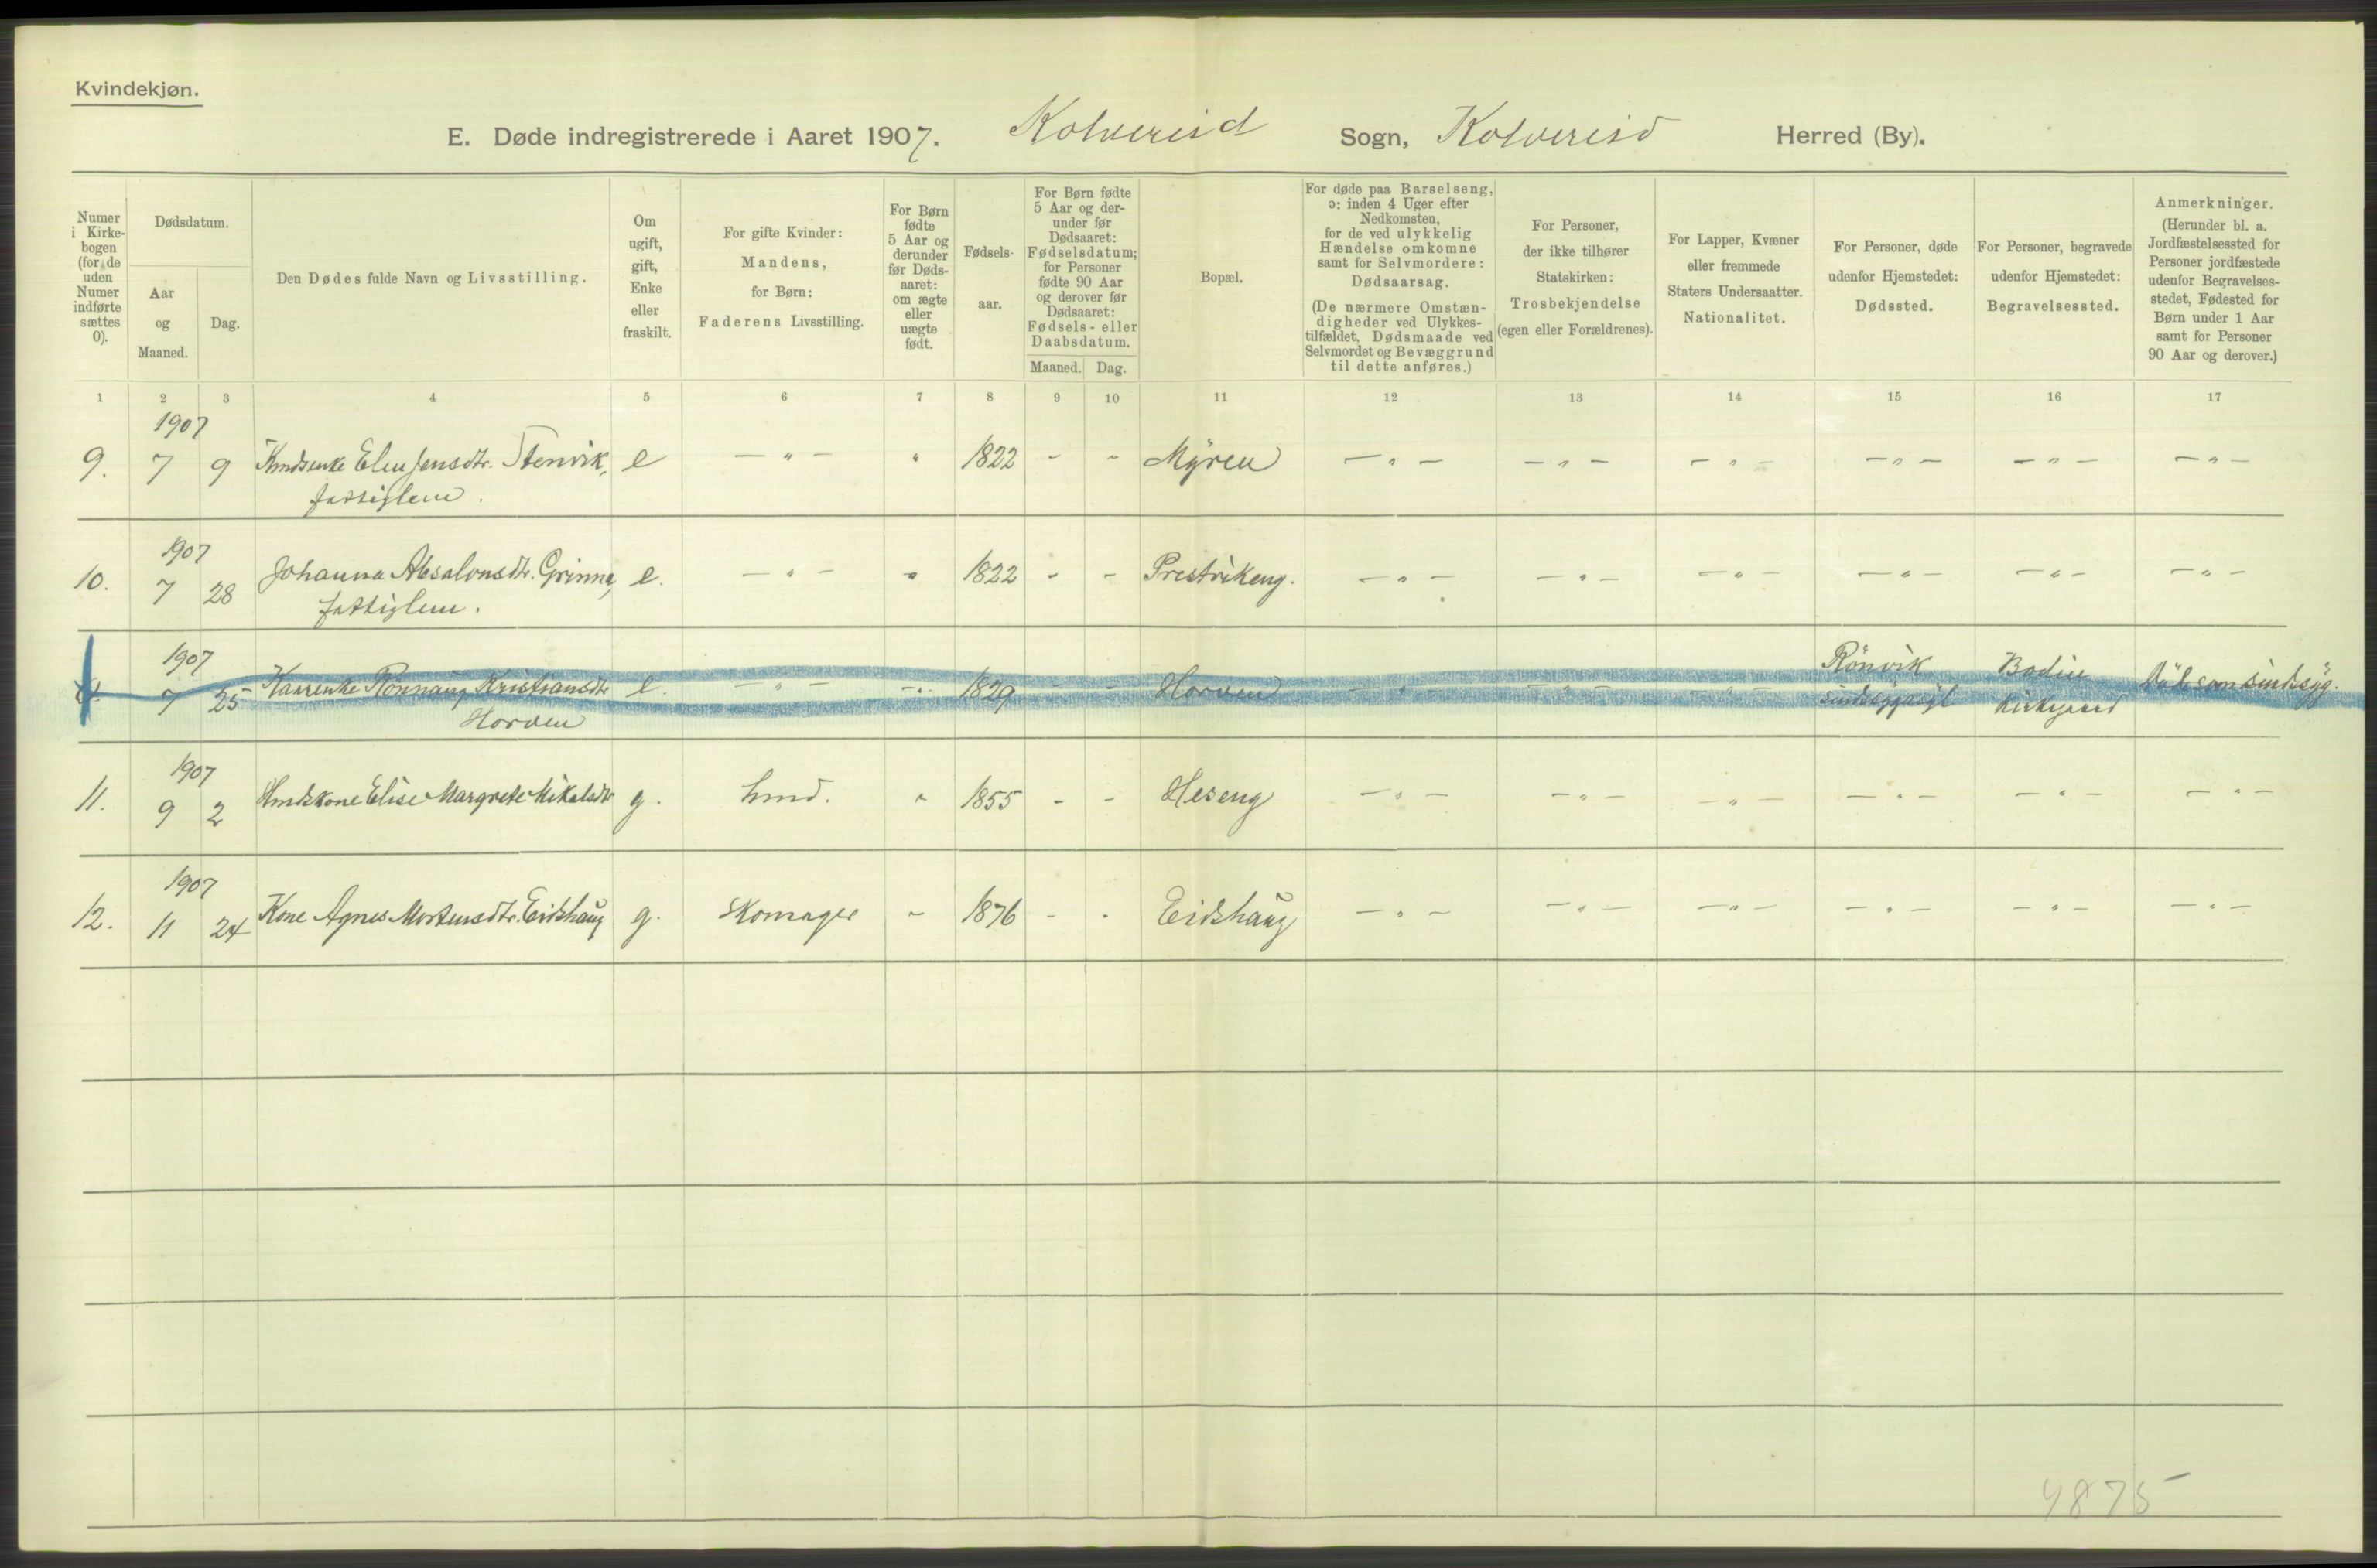 Kvindekjøn.
E. Døde indregistrerede i Aaret 1907. Kolvereid Sogn, Kolvereid Herred (By).
Numer i Kirkebogen (for de uden Numer indførte sættes 0).
Dødsdatum.
Aar og Maaned.
Dag.
Den Dødes fulde Navn og Livsstilling.
Om ugift, gift, Enke eller fraskilt.
For gifte Kvinder: Mandens, for Børn: Faderens Livsstilling.
For Børn fødte 5 Aar og derunder før Dødsaaret: om ægte eller uægte født.
Fødselsaar.
For Børn fødte 5 Aar og derunder før Dødsaaret: Fødselsdatum; for Personer fødte 90 Aar og derover før Dødsaaret: Fødsels- eller Daabsdatum.
Maaned. Dag.
Bopæl.
For døde paa Barselseng, ɔ: inden 4 Uger efter Nedkomsten, for de ved ulykkelig Hændelse omkomne samt for Selvmordere: Dødsaarsag.
(De nærmere Omstændigheder ved Ulykkestilfældet, Dødsmaade ved Selvmordet og Bevæggrund til dette anføres.)
For Personer, der ikke tilhører Statskirken: Trosbekjendelse (egen eller Forældrenes).
For Lapper, Kvæner eller fremmede Staters Undersaatter. Nationalitet.
For Personer, døde udenfor Hjemstedet: Dødssted.
For Personer, begravede udenfor Hjemstedet: Begravelsessted.
Anmerkninger.
(Herunder bl. a. Jordfæstelsessted for Personer jordfæstede udenfor Begravelsesstedet, Fødested for Børn under 1 Aar samt for Personer 90 Aar og derover.)
1 2 3 4 5 6 7 8 9 10 11 12 13 14 15 16 17
1907
9. 7 9 Elen Jensdtr. Stenvik, e — " — " 1822 - - Myren — " — — " — — " — — " — — " — — " —
fattiglem.
1907
10. 7 28 Johanna Absalonsdtr. Grinna, e. — " — " 1822 - - Prestvikeng. — " — — " — — " — — " — — " — — " —
fattiglem.
1907
7 25 Rønnaug Kristiansdtr e. — " — - " - 1829 - - Horven — " — — " — — " — Rönvik sindssygeasyl Bodin Kirkegaard
Horven
1907
11. 9 2 Hmdskone Elise Margrete Mikalsdtr g. hmd. " 1855 - - Heseng — " — — " — — " — — " — — " — — " —
1907
12. 11 24 Kone Agnes Mortensdtr. Eidshaug g. Skomager - 1876 - - Eidshaug — " — — " — — " — — " — — " — — " —
4875